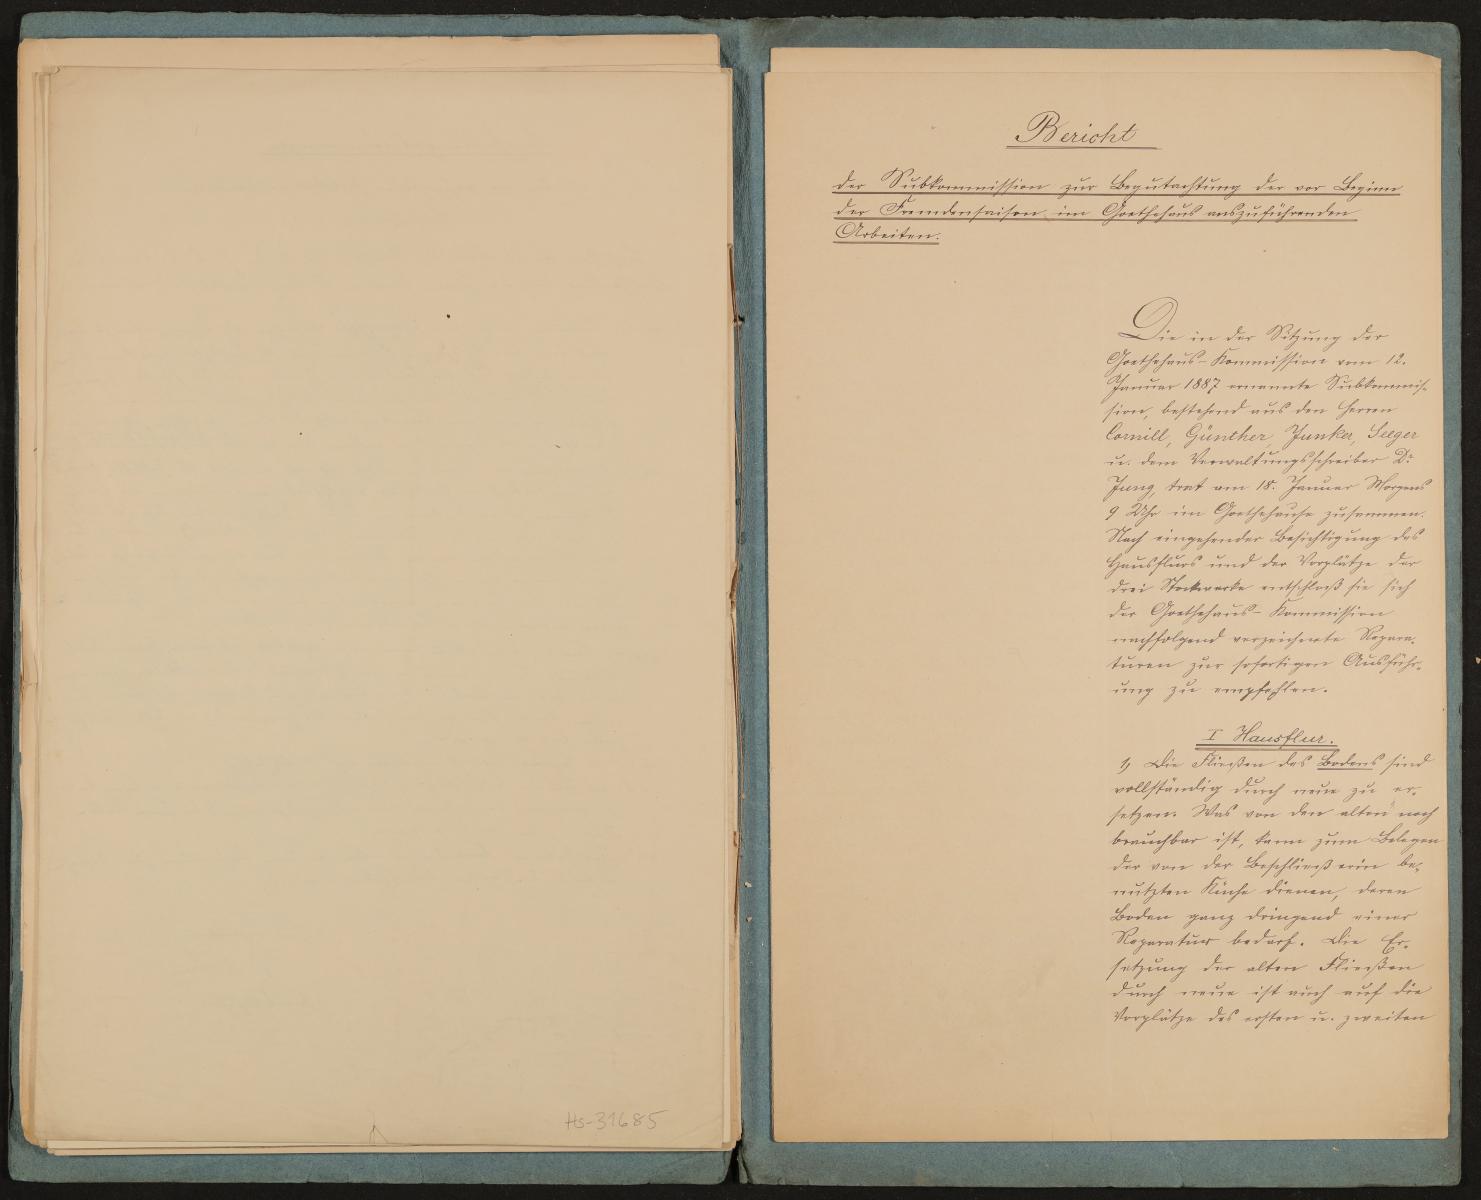 Hs-31685
Bericht
der Subkommission zur Begutachtung der vor Beginn
der Fremdensaison im Goethehaus auszuführenden
Arbeiten.
Die in der Sitzung der
Goethehaus-Kommission vom 12.
Januar 1887 ernannte Subkommis-
sion, bestehend aus den Herren
Cornill, Günther, Junker, Seeger
u. dem Verwaltungsschreiber Dr.
Jung, trat am 18. Januar Morgens
9 Uhr im Goethehause zusammen.
Nach eingehender Besichtigung des
Hausflurs und der Vorplätze der
drei Stockwerke entschloß sie sich
der Goethehaus-Kommission
nachfolgend verzeichnete Repara-
turen zur sofortigen Ausführ-
ung zu empfehlen.
I Hausflur.
1, Die Fließen des Bodens sind
vollständig durch neue zu er-
setzen. Was von den alten noch
brauchbar ist, kann zum Belegen
der von der Beschließerin be-
nutzten Küche dienen, deren
Boden ganz dringend einer
Reparatur bedarf. Die Er-
setzung der alten Fließen
durch neue ist auch auf die
Vorplätze des ersten u. zweiten